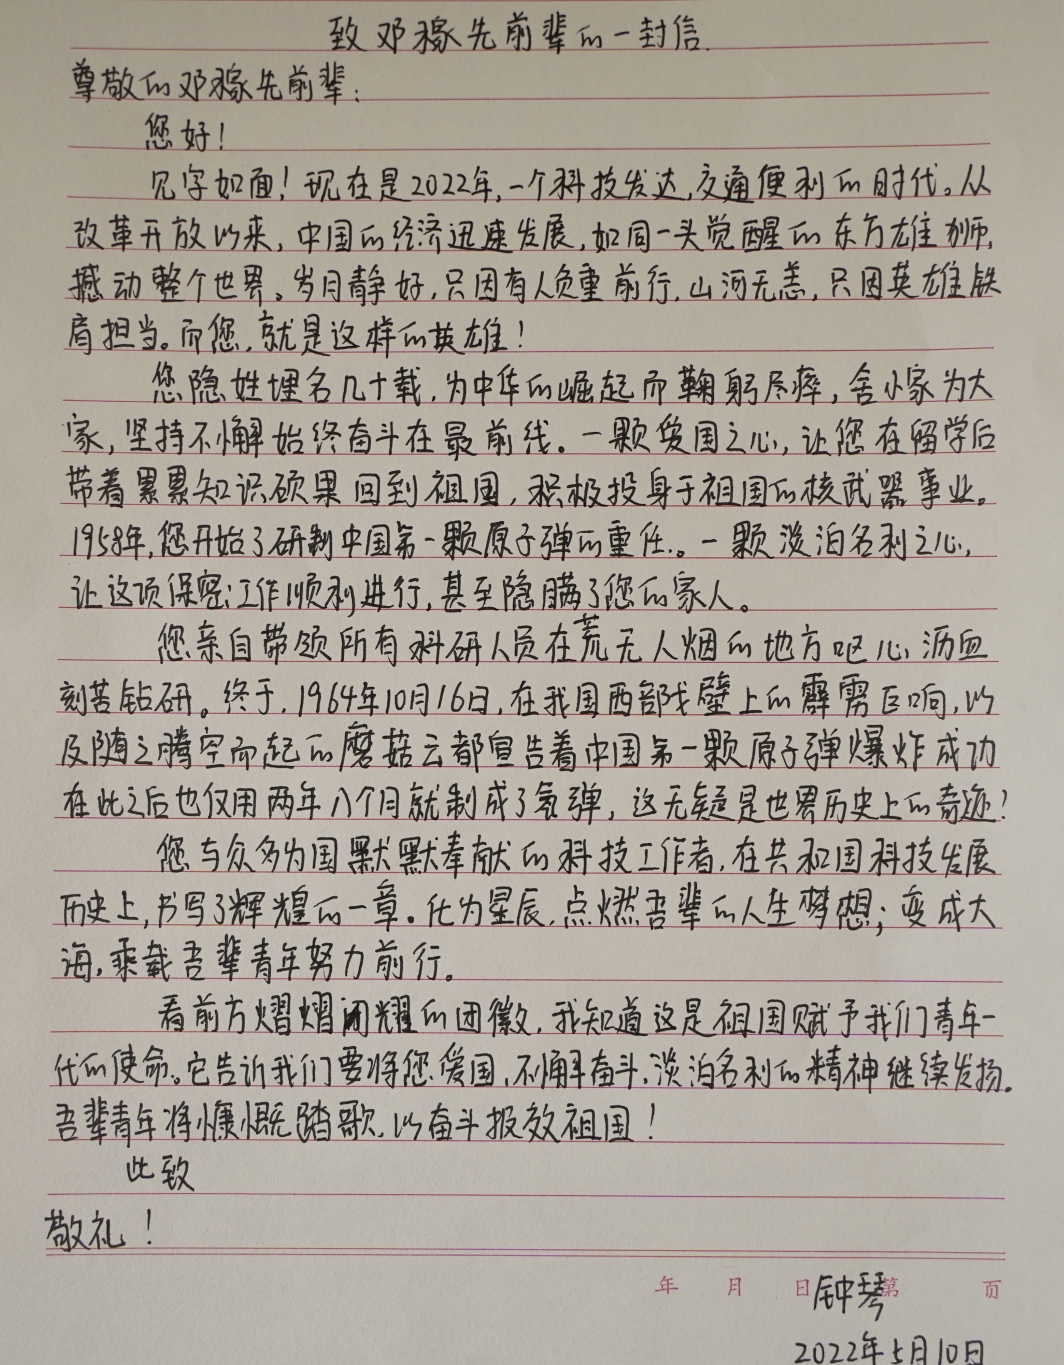 致邓稼先前辈的一封信.
尊敬的邓稼先前辈:
您好!
见字如面!现在是2022年,一个科技发达,交通便利的时代。从
改革开放以来,中国的经济迅速发展,如同一头觉醒的东方雄狮,
撼动整个世界。岁月静好,只因有人负重前行,山河无恙,只因英雄铁
肩担当。而您,就是这样的英雄!
您隐姓埋名几十载,为中华的崛起而鞠躬尽瘁,舍小家为大
家,坚持不懈始终奋斗在最前线。一颗爱国之心,让您在留学后
带着累累知识硕果回到祖国,积极投身于祖国的核武器事业。
1958年,您开始了研制中国第一颗原子弹的重任。一颗淡泊名利之心,
让这项保密工作顺利进行,甚至隐瞒了您的家人。
您亲自带领所有科研人员在荒无人烟的地方呕心沥血
刻苦钻研。终于,1964年10月16日,在我国西部戈壁上的霹雳巨响,以
及随之腾空而起的蘑菇云都宣告着中国第一颗原子弹爆炸成功
在此之后也仅用两年八个月就制成了氢弹,这无疑是世界历史上的奇迹!
您与众多为国默默奉献的科技工作者,在共和国科技发展
历史上,书写了辉煌的一章。化为星辰,点燃吾辈的人生梦想;变成大
海,乘载吾辈青年努力前行。
看前方熠熠闪耀的团徽,我知道这是祖国赋予我们青年一
代的使命。它告诉我们要将您爱国,不懈奋斗,淡泊名利的精神继续发扬.
吾辈青年将慷慨踏歌,以奋斗报效祖国!
此致
敬礼!
年 月 日 第 页
钟琴
2022年5月10日